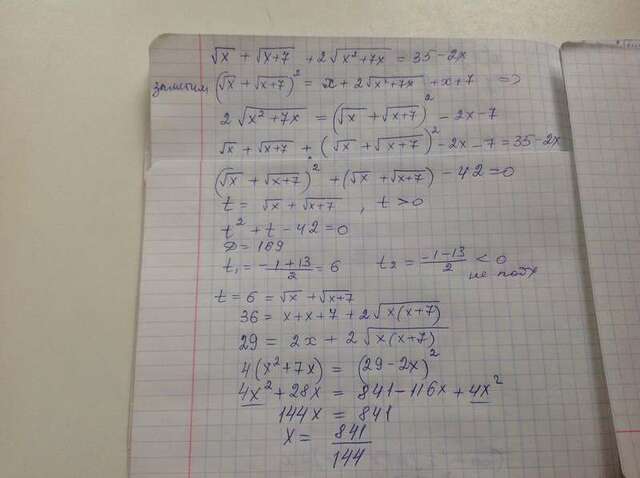 √x + √(x+7) + 2√(x²+7x) = 35-2x
заметим (√x + √(x+7))² = x + 2√(x²+7x) + x+7 =>
2√(x²+7x) = (√x + √(x+7))² - 2x-7
√x + √(x+7) + (√x + √(x+7))² - 2x - 7 = 35-2x
(√x + √(x+7))² + (√x + √(x+7)) - 42 = 0
t = √x + √(x+7) , t > 0
t² + t - 42 = 0
D = 169
t₁ = (-1+13)/2 = 6 t₂ = (-1-13)/2 < 0
не подх
t = 6 = √x + √(x+7)
36 = x + x + 7 + 2√(x(x+7))
29 = 2x + 2√(x(x+7))
4(x²+7x) = (29-2x)²
4x² + 28x = 841 - 116x + 4x²
144x = 841
x = 841/144